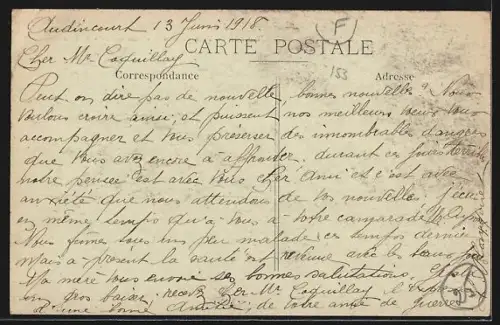 Audincourt 13 Juin 1918.
F
Cher Mr Coquillay
CARTE POSTALE
153
Correspondance
Adresse
Peut on dire pas de nouvelle, bonnes nouvelle. Nous
voulons croire ainsi, et puissent nos meilleurs voeux vous
accompagner et vous préserver des innombrables dangers
que vous avez encore à affronter. durant ces jours terribles
notre pensée est avec vous cher Ami et c'est avec
anxiété que nous attendons de vos nouvelle, j'écris
en même temps qu'à vous à votre camarade
Nous fûmes tous un peu malade ces temps dernier
mais à présent la santé est revenue avec les beaux
Ma mère vous envoie ses bonnes salutations,
un gros baiser, recevez Cher Mr Coquillay
d'une bonne Amitié de votre amie de Guerre